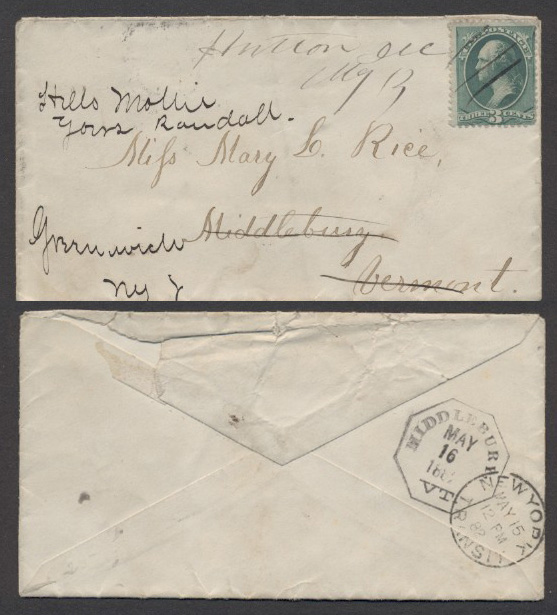 Hutton
U.S. POSTAGE
THREE 3 CENTS
Hello Mollie
Yours Randall.
Miss Mary L. Rice,
Middlebury
Greenwich
Vermont.
NY
MIDDLEBURY
MAY
16
VT
NEW YORK
MAY 15
12 PM
82